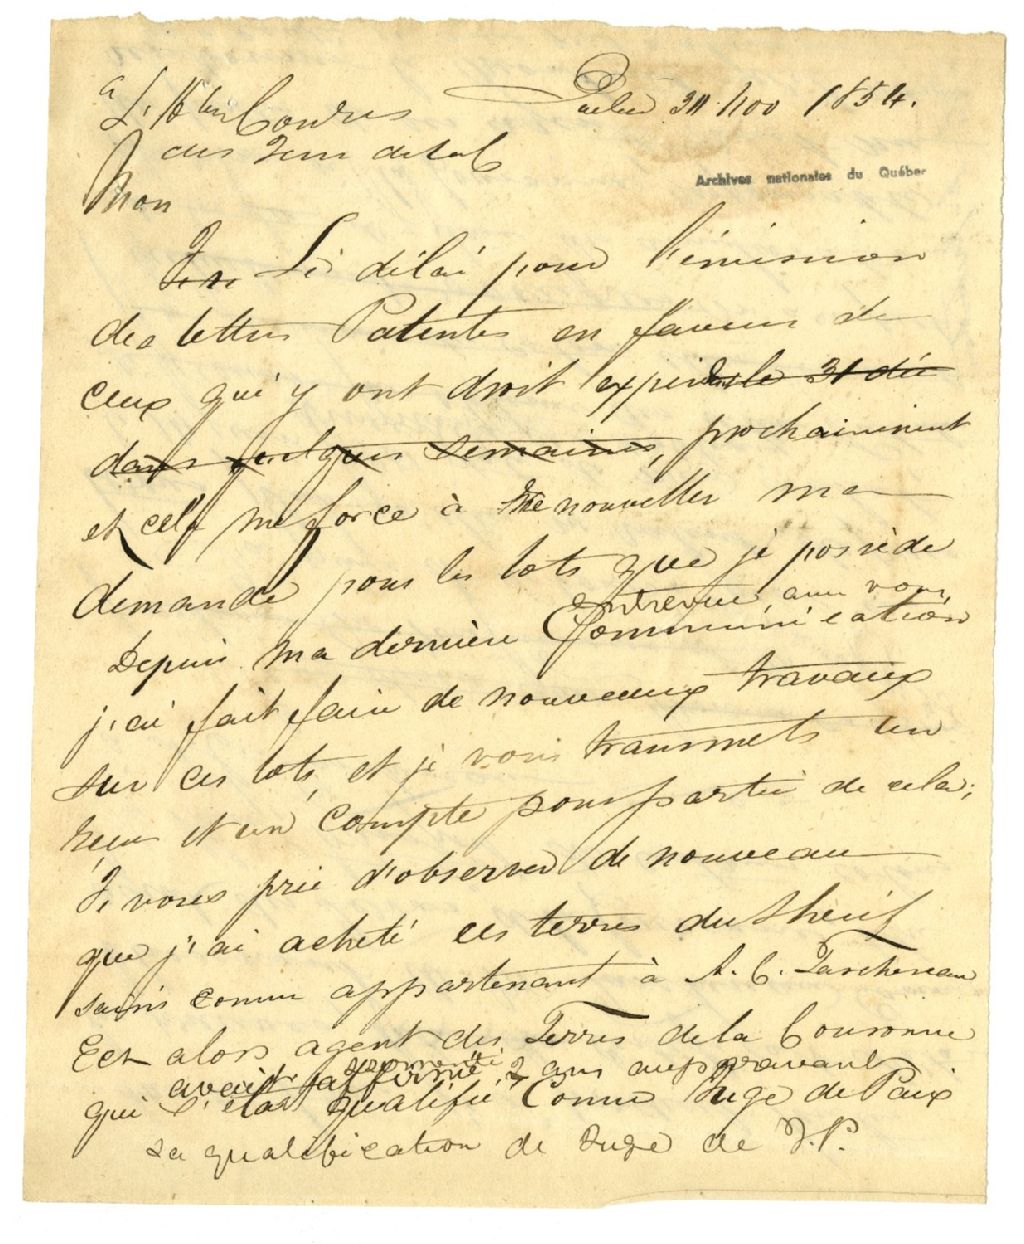 Québec 24 Nov 1854.
a L'Hble
des Terres de la C
Archives nationales du Québec
Mon
Le délai pour l'émission
des lettres Patentes en faveur de
ceux qui y ont droit expire le 31 déc
dans quelques semaines, prochainement
et cela me force à renouveller ma
demande pour les lots que je possède
entrevue avec vous
Depuis ma dernière Communication
j'ai fait faire de nouveaux travaux
sur ces lots, et je vous transmets un
reçu et un compte pour partie de cela;
Je vous prie d'observer de nouveau
que j'ai acheté ces terres du Shérif
saisis comme appartenant à A. C. Taschereau
Ecr alors agent des Terres de la Couronne
avait affirmé 2 ans auparavant
qui s'était qualifié Comme Juge de Paix
sa qualification de Juge de J.P.